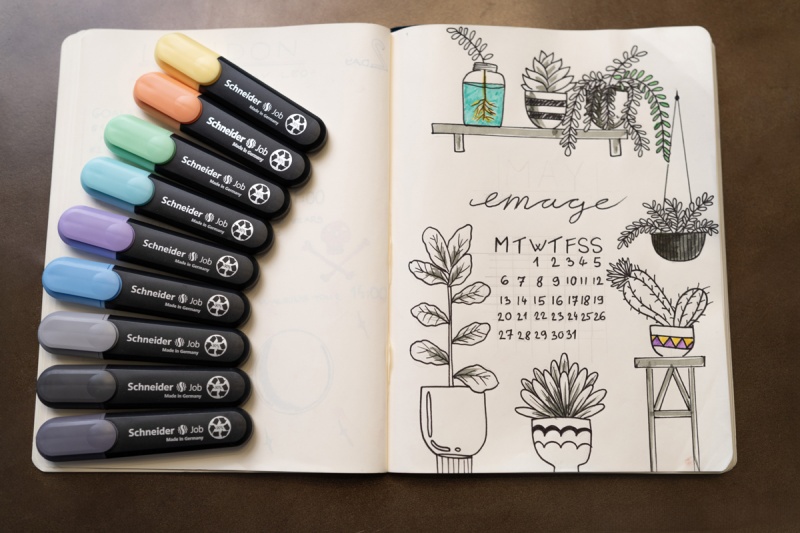 Schneider Job
Made in Germany
Schneider Job
Made in Germany
Schneider Job
Made in Germany
Schneider Job
Made in Germany
Schneider Job
Made in Germany
Schneider Job
Made in Germany
Schneider Job
Made in Germany
Schneider Job
Made in Germany
Schneider Job
Made in Germany
emage
M T W T F S S
1 2 3 4 5
6 7 8 9 10 11 12
13 14 15 16 17 18 19
20 21 22 23 24 25 26
27 28 29 30 31